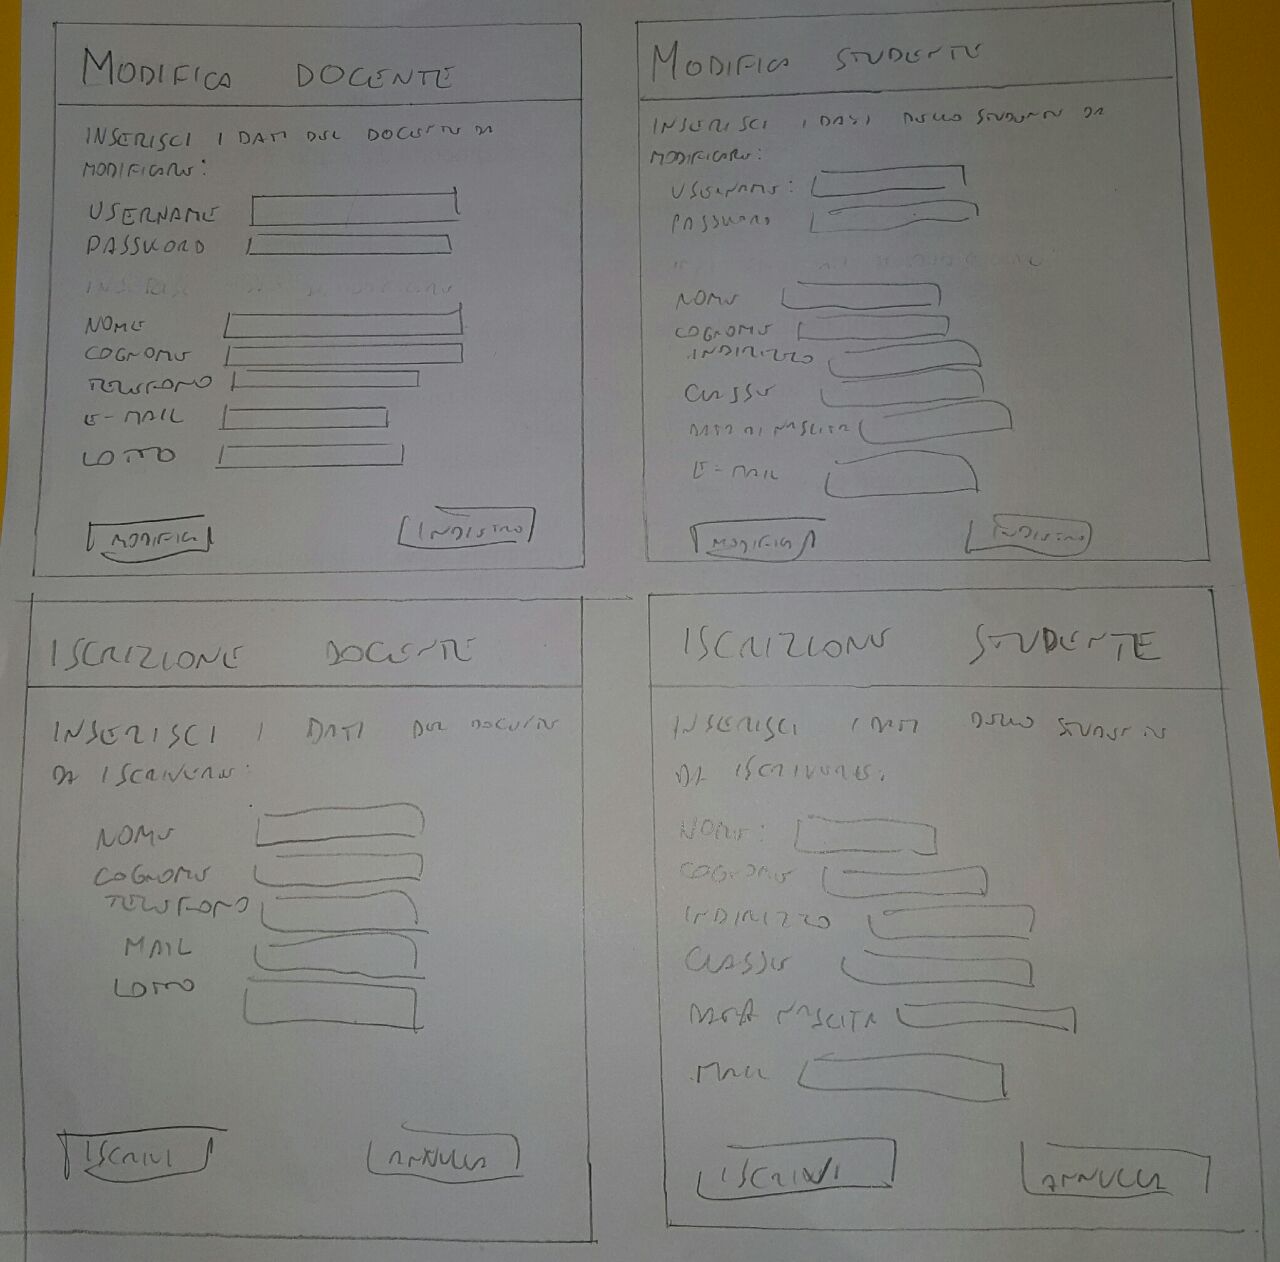 MODIFICA DOCENTE
INSERISCI I DATI DEL DOCENTE DA
MODIFICARE:
USERNAME
PASSWORD
INSERISCI
NOME
COGNOME
TELEFONO
E-MAIL
LOTTO
MODIFICA INDIETRO
MODIFICA STUDENTE
INSERISCI I DATI DELLO STUDENTE DA
MODIFICARE:
USERNAME:
PASSWORD
NOME
COGNOME
INDIRIZZO
CLASSE
DATA DI NASCITA
E-MAIL
MODIFICA INDIETRO
ISCRIZIONE DOCENTE
INSERISCI I DATI DEL DOCENTE
DA ISCRIVERE:
NOME
COGNOME
TELEFONO
MAIL
LOTTO
ISCRIVI ANNULLA
ISCRIZIONE STUDENTE
INSERISCI I DATI DELLO STUDENTE
DA ISCRIVERE:
NOME:
COGNOME
INDIRIZZO
CLASSE
DATA NASCITA
MAIL
ISCRIVI ANNULLA